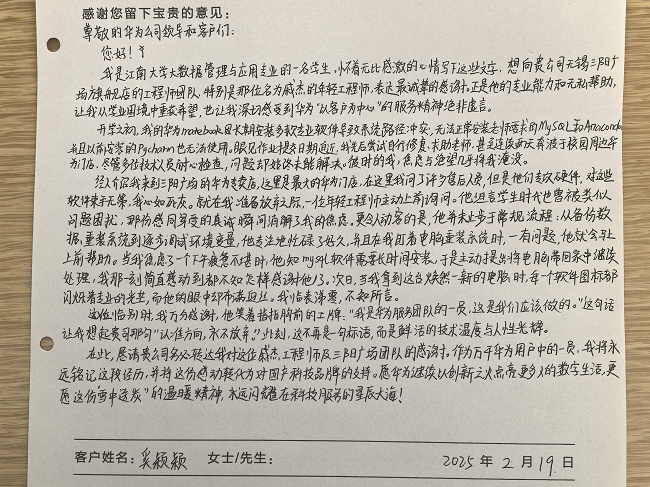 感谢您留下宝贵的意见：
尊敬的华为公司领导和客户们：
您好！
我是江南大学大数据管理与应用专业的一名学生，怀着无比感激的心情写下这些文字，想向贵公司无锡三阳广
场旗舰店的工程师团队，特别是那位名为威杰的年轻工程师，表达最诚挚的感谢！正是他的专业能力和无私帮助，
让我从学业困境中重获希望，也让我深切感受到华为“以客户为中心”的服务精神绝非虚言。
开学之初，我的华为matebook因长期安装多款专业软件导致系统路径冲突，无法正常安装老师要求的MySQL和Anaconda
并且以前安装的Pycharm也无法使用。眼见作业提交日期迫近，我先后尝试自行修复、求助老师，甚至连续两天奔波于校园周边华
为门店，尽管多位技术人员耐心检查，问题却始终未能解决。彼时的我，焦虑与绝望几乎将我淹没。
经人介绍我来到三阳广场的华为专卖店，这里是最大的华为门店，在这里我问了许多售后人员，但是他们专攻硬件，对这些
软件束手无策，我心如死灰。就在我准备放弃之际，一位年轻工程师主动上前询问。他坦言学生时代也曾被类似
问题困扰，那份感同身受的真诚瞬间消解了我的焦虑。更令人动容的是，他并未止步于常规流程：从备份数
据、重装系统到逐步调试环境变量，他专注地忙碌了好久，并且在我盯着电脑重装系统时，一有问题，他就会马上
上前帮助。当我焦虑了一个下午疲惫不堪时，他知mysql软件需要长时间安装，于是主动提出将电脑带回家中继续
处理，我那一刻简直感动到都不知怎样感谢他了。次日，当我拿到这台焕然一新的电脑时，每一个软件图标都
闪烁着专业的光芒，而他的眼中却布满血丝。我临表涕零，不知所言。
临别时，我万分感谢，他笑着指指胸前的工牌：“我是华为服务团队的一员，这是我们应该做的。”这句话
让我想起贵司那句“认准方向，永不放弃。”此刻，这不再是一句标语，而是鲜活的技术温度与人性光辉。
在此，恳请贵公司务必转达我对这位威杰工程师及三阳广场团队的感谢。作为万千华为用户中的一员，我将永
远铭记这段经历，并将这份感动转化为对国产科技品牌的支持。愿华为继续以创新之火点亮更多人的数字生活，更
愿这份“雪中送炭”的温暖精神，永远闪耀在科技服务的星辰大海！
客户姓名：奚颖颖 女士/先生： 2025 年 2 月 19 日